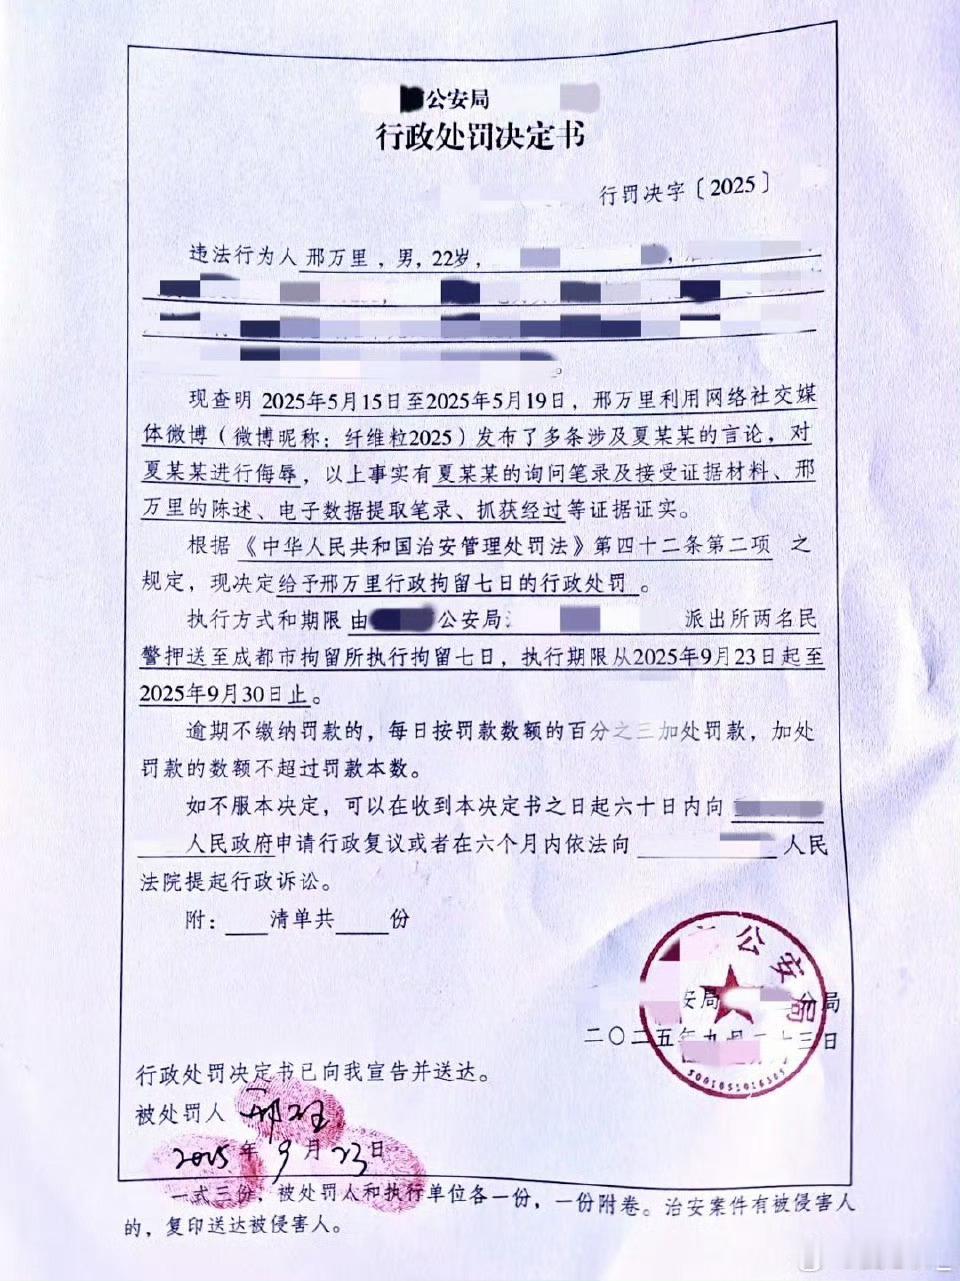 公安局
行政处罚决定书
行罚决字〔2025〕
违法行为人 邢万里，男，22岁，
现查明 2025年5月15日至2025年5月19日，邢万里利用网络社交媒
体微博（微博昵称：纤维粒2025）发布了多条涉及夏某某的言论，对
夏某某进行侮辱，以上事实有夏某某的询问笔录及接受证据材料、邢
万里的陈述、电子数据提取笔录、抓获经过等证据证实。
根据《中华人民共和国治安管理处罚法》第四十二条第二项 之
规定，现决定给予邢万里行政拘留七日的行政处罚 。
执行方式和期限 由 公安局 派出所两名民
警押送至成都市拘留所执行拘留七日，执行期限从2025年9月23日起至
2025年9月30日止。
逾期不缴纳罚款的，每日按罚款数额的百分之三加处罚款，加处
罚款的数额不超过罚款本数。
如不服本决定，可以在收到本决定书之日起六十日内向
人民政府申请行政复议或者在六个月内依法向 人民
法院提起行政诉讼。
附：____清单共____份
公安局
安局 分局
二〇二五年九月二十三日
行政处罚决定书已向我宣告并送达。
被处罚人
2025年9月23日
一式三份，被处罚人和执行单位各一份，一份附卷。治安案件有被侵害人
的，复印送达被侵害人。